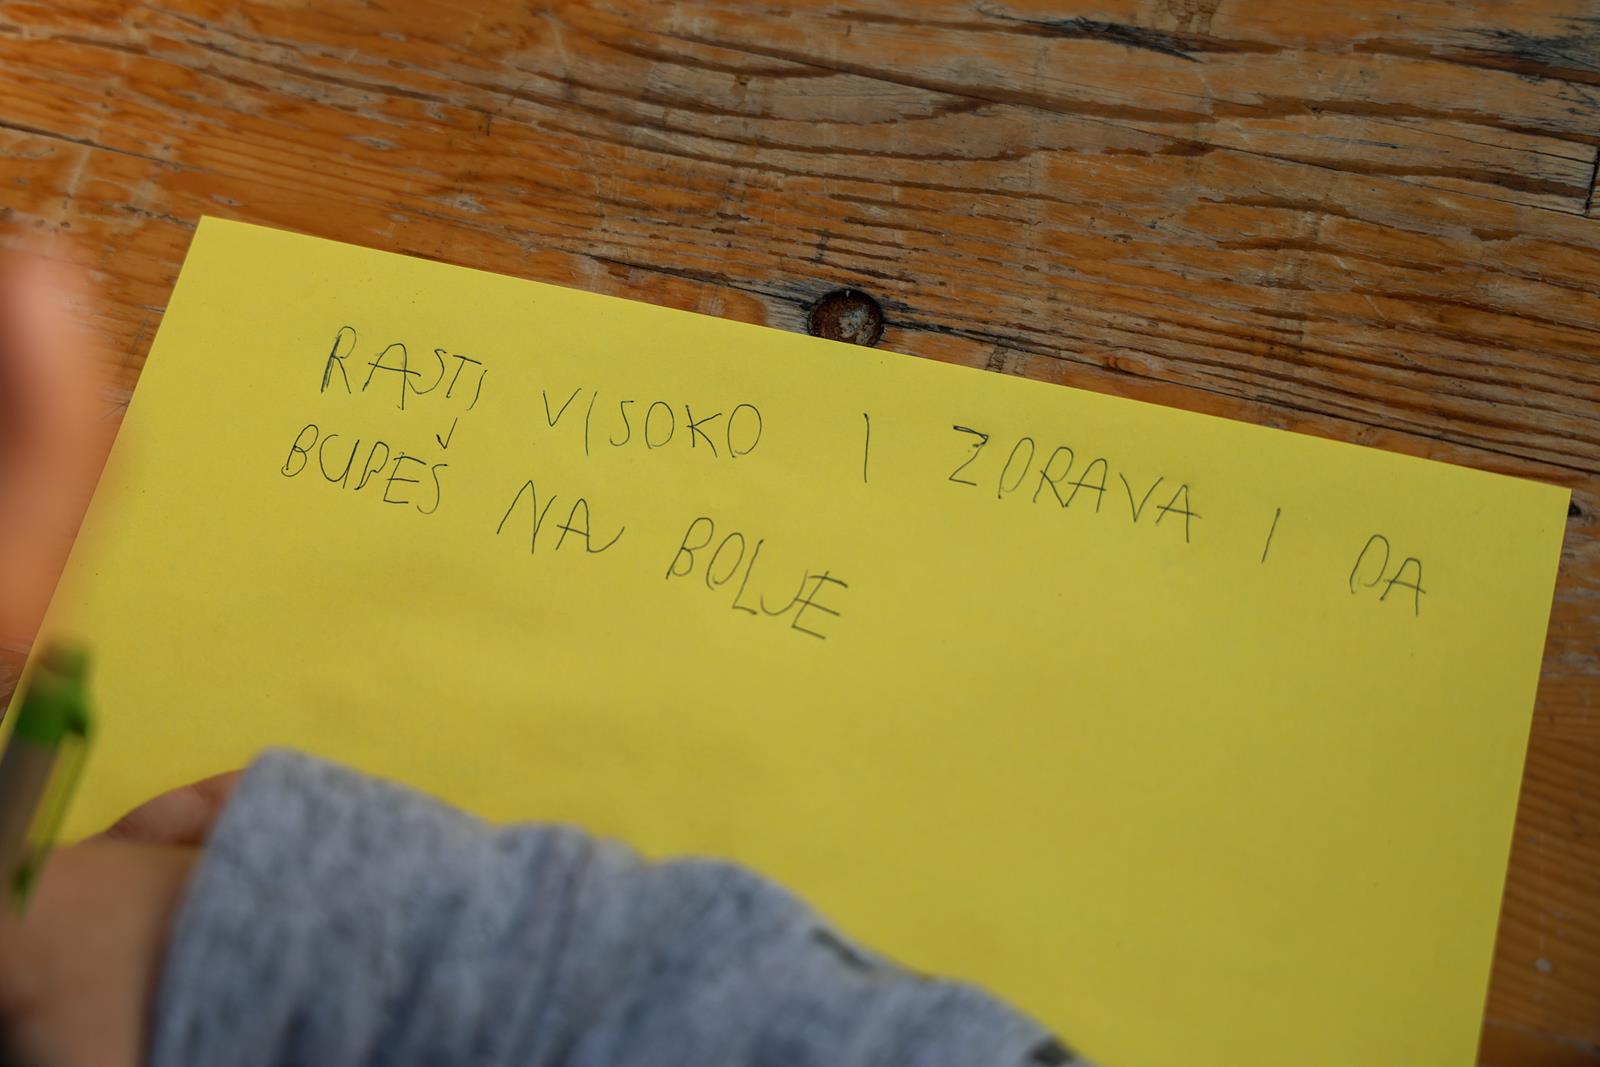 RASTI VISOKO I ZDRAVA I DA
BUDEŠ NAJ BOLJE